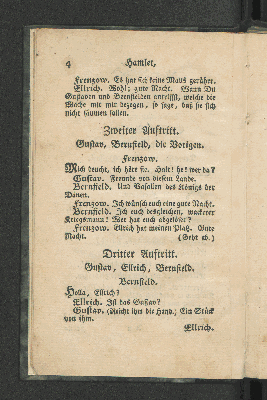 4 Hamlet,
Frenzow. Es hat sich keine Maus gerühret.
Ellrich. Wohl; gute Nacht. Wann Du
Gustaven und Bernfielden antriffst, welche die
Wache mit mir bezogen, so sage, daß sie sich
nicht säumen sollen.
Zweiter Auftritt.
Gustav, Bernfield, die Vorigen.
Frenzow.
Mich deucht, ich höre sie. Halt! he! wer da?
Gustav. Freunde von diesem Lande.
Bernfield. Und Vasallen des Königs der
Dänen.
Frenzow. Ich wünsch euch eine gute Nacht.
Bernfield. Ich euch desgleichen, wackerer
Kriegsmann! Wer hat euch abgelöst?
Frenzow. Ellrich hat meinen Platz. Gute
Nacht. (Geht ab.)
Dritter Auftritt.
Gustav, Ellrich, Bernfield.
Bernfield.
Holla, Ellrich?
Ellrich. Ist das Gustav?
Gustav. (Reicht ihm die Hand.) Ein Stück
von ihm.
Ellrich.